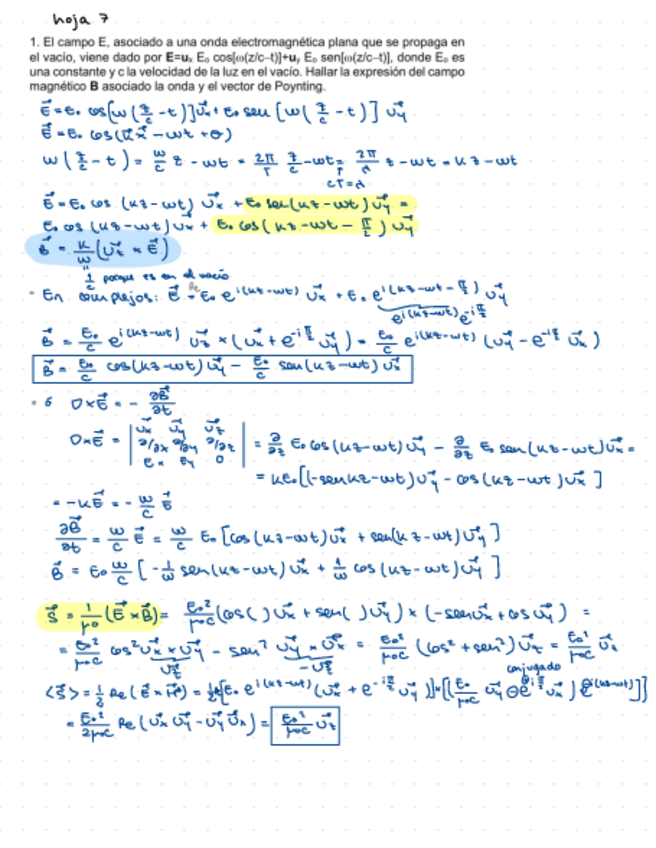 hoja 7
1. El campo E, asociado a una onda electromagnética plana que se propaga en
el vacío, viene dado por E=uₓ E₀ cos[ω(z/c-t)]+uᵧ E₀ sen[ω(z/c-t)], donde E₀ es
una constante y c la velocidad de la luz en el vacío. Hallar la expresión del campo
magnético B asociado la onda y el vector de Poynting.
E⃗ = E₀ cos[w(z/c - t)]u⃗x + E₀ sen[w(z/c - t)] u⃗y
E⃗ = E₀ cos(k⃗x⃗ - wt + θ)
w(z/c - t) = w/c z - wt = 2π/T z/c - wt = 2π/λ z - wt = kz - wt
cT=λ
E⃗ = E₀ cos (kz - wt) u⃗x + E₀ sen(kz - wt) u⃗y =
E₀ cos (kz - wt) u⃗x + E₀ cos(kz - wt - π/2) u⃗y
B⃗ = k/w (u⃗z × E⃗)
1/c porque es en el vacío
· En complejos: E⃗ = E₀ e^i(kz-wt) u⃗x + E₀ e^i(kz-wt-π/2) u⃗y
e^i(kz-wt) e^-iπ/2
B⃗ = E₀/c e^i(kz-wt) u⃗z × (u⃗x + e^-iπ/2 u⃗y) = E₀/c e^i(kz-wt) (u⃗y - e^-iπ/2 u⃗x)
B⃗ = E₀/c cos(kz-wt) u⃗y - E₀/c sen(kz-wt) u⃗x
· ó ∇×E⃗ = - ∂B⃗/∂t
∇×E⃗ = | u⃗x u⃗y u⃗z ; ∂/∂x ∂/∂y ∂/∂z ; Ex Ey 0 | = ∂/∂z E₀ cos(kz-wt) u⃗y - ∂/∂z E₀ sen(kz-wt) u⃗x =
= kE₀[(-sen kz-wt) u⃗y - cos(kz-wt) u⃗x]
= -kE⃗ = - w/c E⃗
∂B⃗/∂t = w/c E⃗ = w/c E₀ [cos(kz-wt) u⃗x + sen(kz-wt) u⃗y]
B⃗ = E₀ w/c [-1/w sen(kz-wt) u⃗x + 1/w cos(kz-wt) u⃗y]
S⃗ = 1/μ₀ (E⃗ × B⃗) = E₀²/μ₀c (cos( ) u⃗x + sen( ) u⃗y) × (-sen u⃗x + cos u⃗y) =
= E₀²/μ₀c cos² u⃗x × u⃗y - sen² u⃗y × u⃗x = E₀²/μ₀c (cos² + sen²) u⃗z = E₀²/μ₀c u⃗z
u⃗z -u⃗z conjugado
<S⃗> = 1/2 Re(E⃗ × H⃗*) = 1/2 Re[E₀ e^i(kz-wt) (u⃗x + e^-iπ/2 u⃗y)]×[(E₀/μ₀c u⃗y ⊖ e^iπ/2 u⃗x) e^i(kz-wt)]]
= E₀²/2μ₀c Re(u⃗x u⃗y - u⃗y u⃗x) = E₀²/μ₀c u⃗z